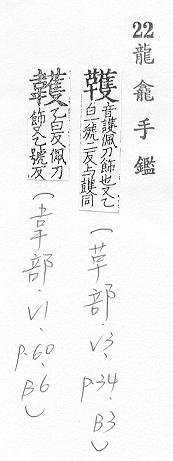 22
龍龕手鑑
韄 音護佩刀飾也又乙
白一虢二反与䪝同
乙白反佩刀
飾又乙號反
(革部.V3、p.34、B3)
(韋部.V1、p.60、B6)